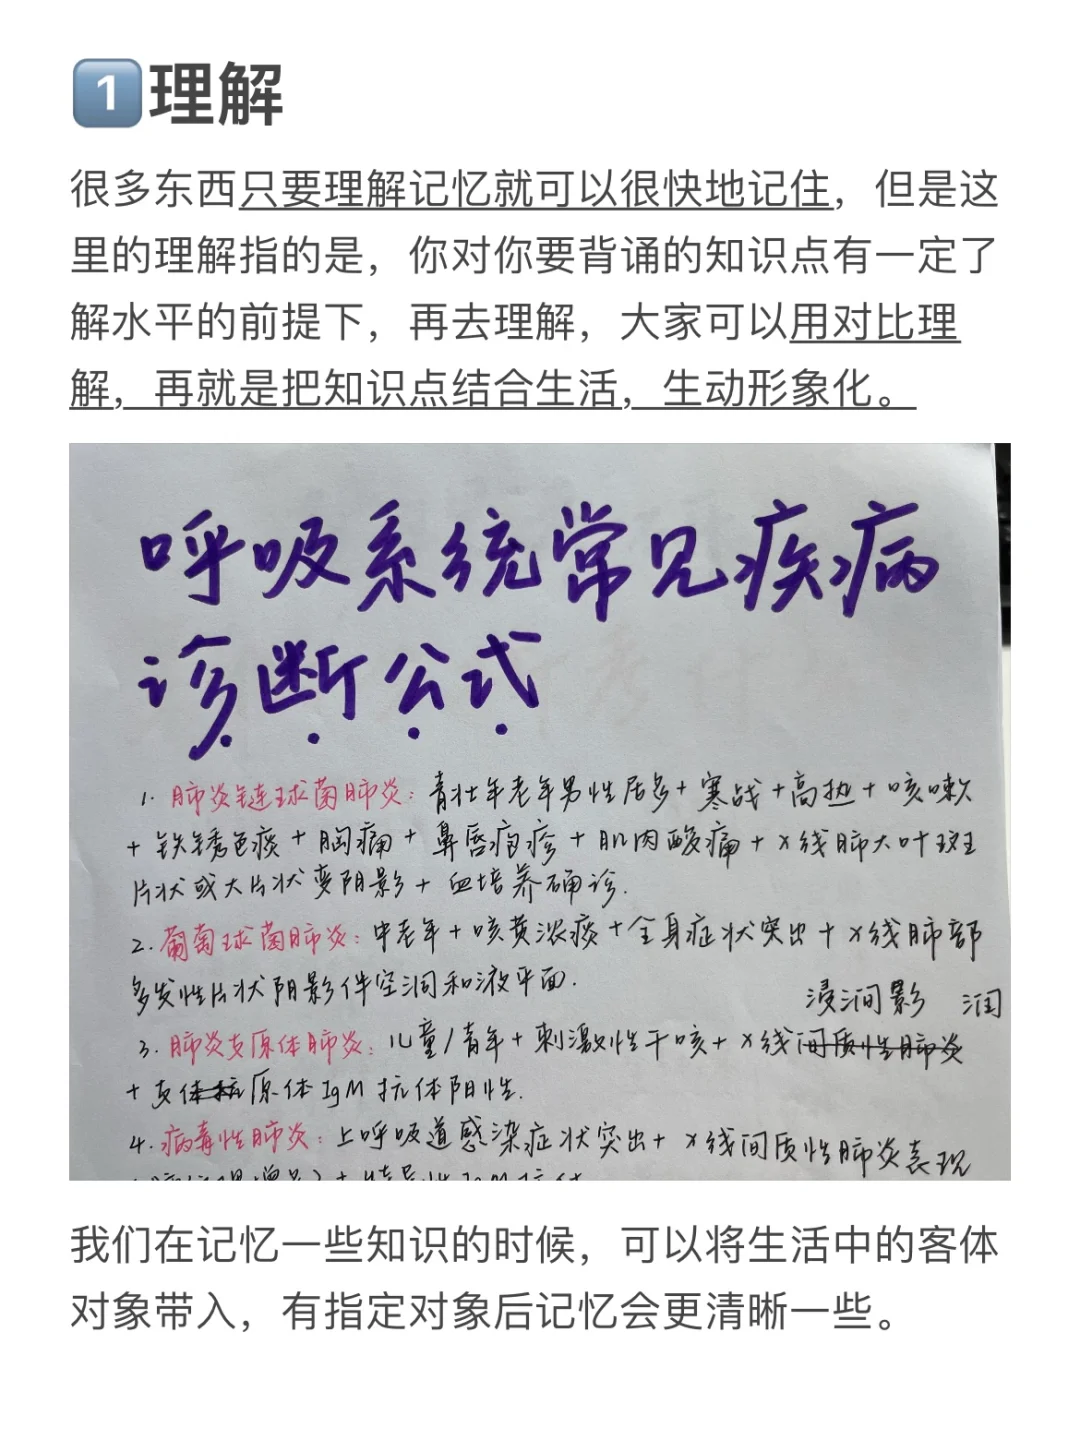 1 理解
很多东西只要理解记忆就可以很快地记住，但是这
里的理解指的是，你对你要背诵的知识点有一定了
解水平的前提下，再去理解，大家可以用对比理
解，再就是把知识点结合生活，生动形象化。
呼吸系统常见疾病
诊断公式
1. 肺炎链球菌肺炎：青壮年老年男性居多+寒战+高热+咳嗽
+铁锈色痰+胸痛+鼻唇疱疹+肌肉酸痛+X线肺大叶斑
片状或大片状变阴影+血培养确诊.
2. 葡萄球菌肺炎：中老年+咳黄浓痰+全身症状突出+X线肺部
多发性片状阴影伴空洞和液平面.
浸润影 润
3. 肺炎支原体肺炎：儿童/青年+刺激性干咳+X线间质性肺炎
+支体抗原体IgM抗体阳性.
4. 病毒性肺炎：上呼吸道感染症状突出+X线间质性肺炎表现
我们在记忆一些知识的时候，可以将生活中的客体
对象带入，有指定对象后记忆会更清晰一些。